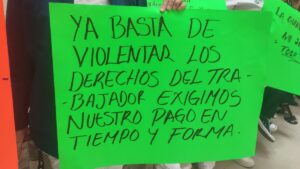 YA BASTA DE
VIOLENTAR LOS
DERECHOS DEL TRA-
-BAJADOR EXIGIMOS
NUESTRO PAGO EN
TIEMPO Y FORMA.
LA